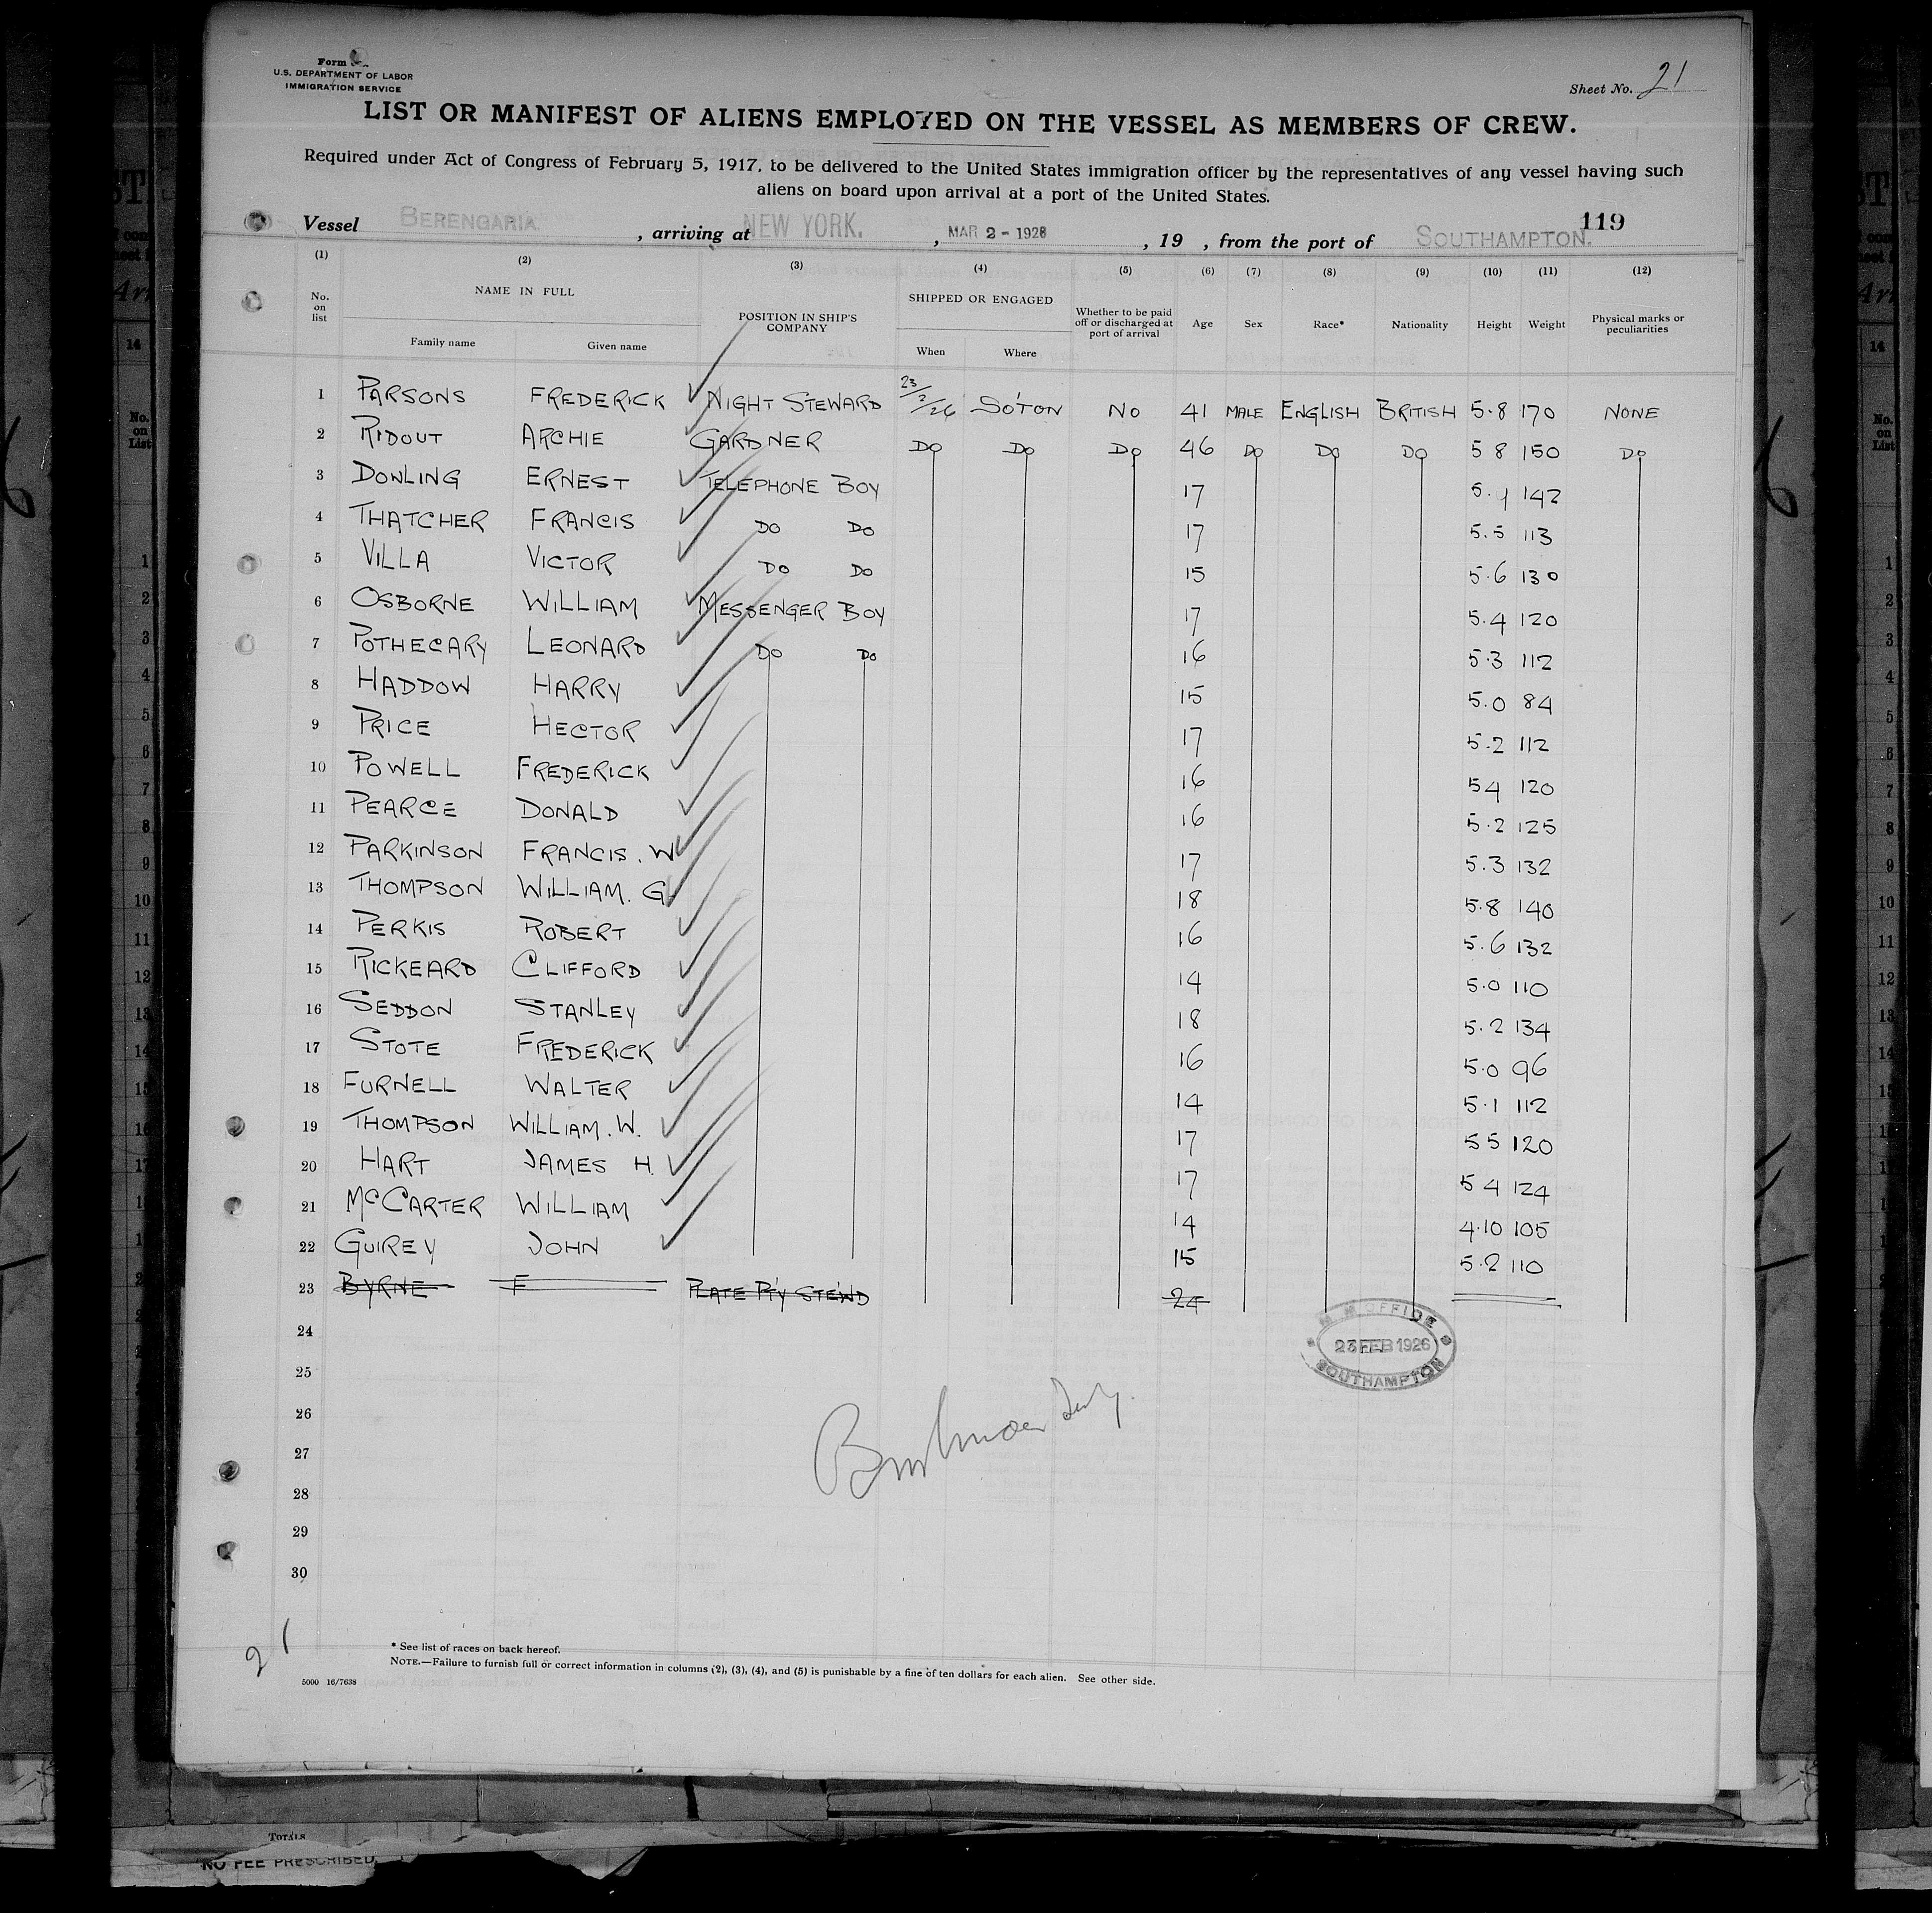 Form
U.S. DEPARTMENT OF LABOR
IMMIGRATION SERVICE
Sheet No. 21
LIST OR MANIFEST OF ALIENS EMPLOYED ON THE VESSEL AS MEMBERS OF CREW.
Required under Act of Congress of February 5, 1917, to be delivered to the United States immigration officer by the representatives of any vessel having such
aliens on board upon arrival at a port of the United States.
119
Vessel BERENGARIA, arriving at NEW YORK., MAR 2 - 1926, 19 , from the port of SOUTHAMPTON.
(1) (2) (3) (4) (5) (6) (7) (8) (9) (10) (11) (12)
No. on list NAME IN FULL POSITION IN SHIP'S COMPANY SHIPPED OR ENGAGED Whether to be paid off or discharged at port of arrival Age Sex Race* Nationality Height Weight Physical marks or peculiarities
Family name Given name When Where
1 PARSONS FREDERICK NIGHT STEWARD 23/2/26 SO'TON NO 41 MALE ENGLISH BRITISH 5.8 170 NONE
2 RIDOUT ARCHIE GARDNER DO DO DO 46 DO DO DO 5 8 150 DO
3 DOWLING ERNEST TELEPHONE BOY 17 5. 142
4 THATCHER FRANCIS DO DO 17 5.5 113
5 VILLA VICTOR DO DO 15 5.6 130
6 OSBORNE WILLIAM MESSENGER BOY 17 5.4 120
7 POTHECARY LEONARD DO DO 16 5.3 112
8 HADDOW HARRY 15 5.0 84
9 PRICE HECTOR 17 5.2 112
10 POWELL FREDERICK 16 5 4 120
11 PEARCE DONALD 16 5.2 125
12 PARKINSON FRANCIS. W 17 5.3 132
13 THOMPSON WILLIAM. G 18 5.8 140
14 PERKIS ROBERT 16 5.6 132
15 RICKEARD CLIFFORD 14 5.0 110
16 SEDDON STANLEY 18 5.2 134
17 STOTE FREDERICK 16 5.0 96
18 FURNELL WALTER 14 5.1 112
19 THOMPSON WILLIAM. W. 17 5 5 120
20 HART JAMES H. 17 5 4 124
21 McCARTER WILLIAM 14 4.10 105
22 GUIREY JOHN 15 5.2 110
23 BYRNE F PLATE P'TY STEW'D 24
24
25
26
27
28
29
30
OFFICE
23 FEB 1926
SOUTHAMPTON
21
* See list of races on back hereof.
NOTE.—Failure to furnish full or correct information in columns (2), (3), (4), and (5) is punishable by a fine of ten dollars for each alien. See other side.
5000 16/7638
TOTALS
NO FEE PRESCRIBED.